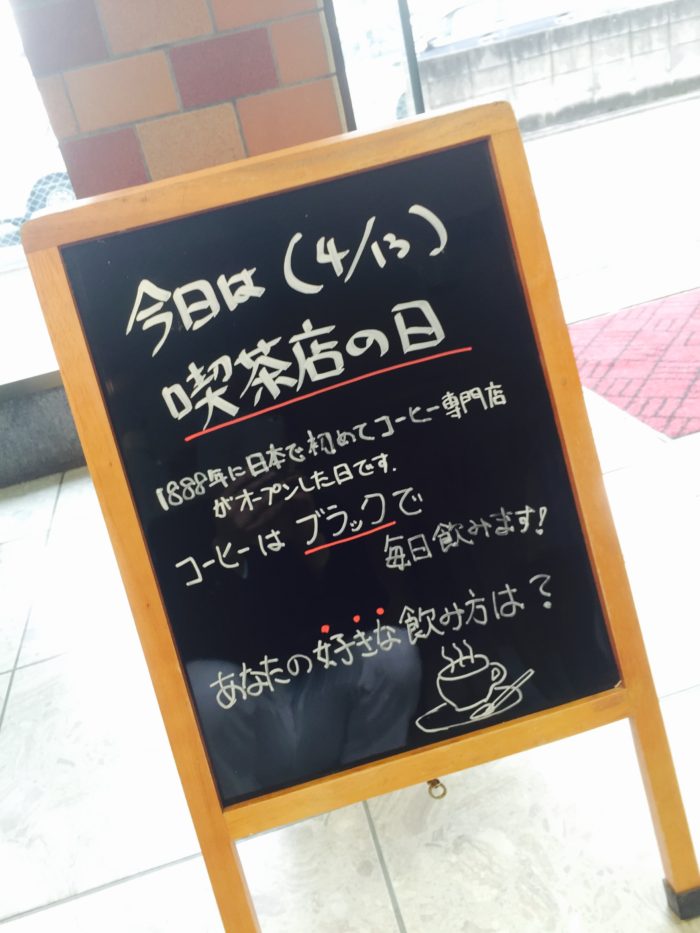 今日は（4/13）
喫茶店の日
1888年に日本で初めてコーヒー専門店
がオープンした日です.
コーヒーは ブラックで
毎日飲みます!
あなたの好きな飲み方は?